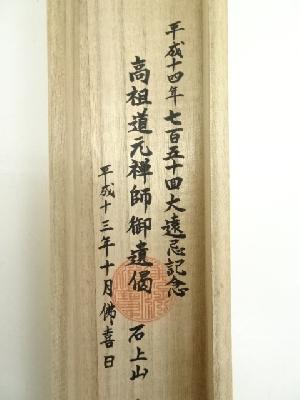 平成十四年七百五十四大遠忌記念
高祖道元禅師御遺偈
石上山
平成十三年十月佛喜日